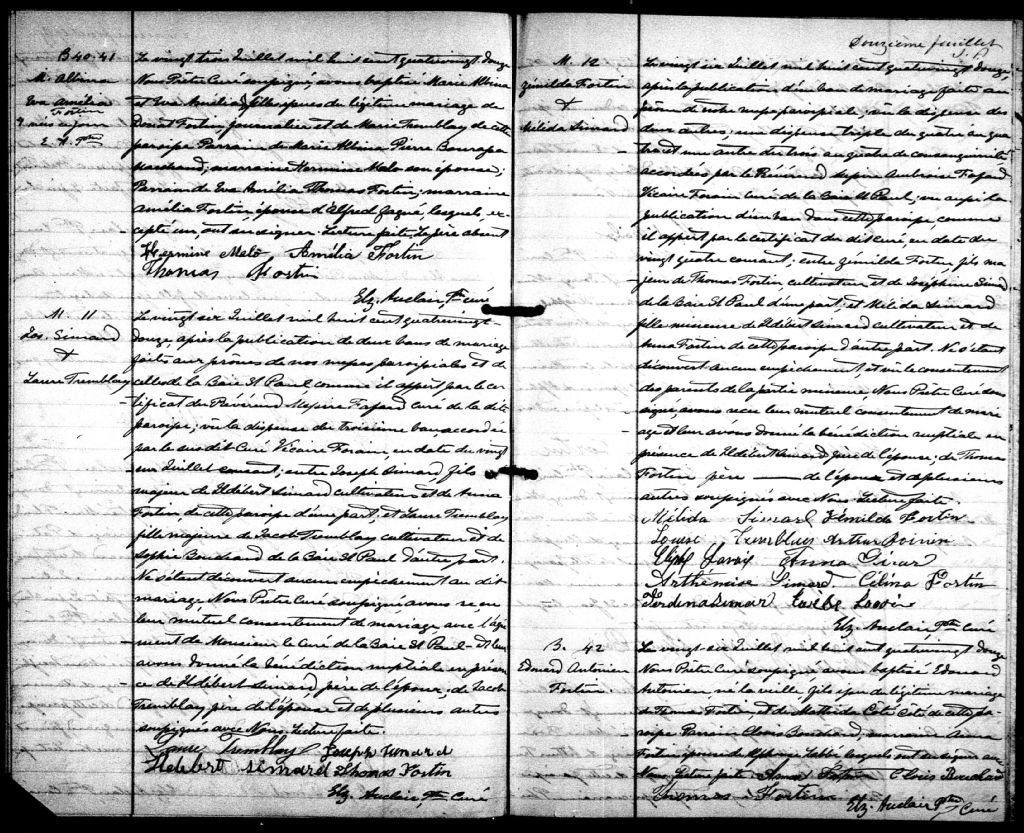 B 40-41
M. Albina
Eva Amélia
Fortin
Le vingt trois Juillet mil huit cent quatrevingt douze
Nous Prêtre Curé soussigné, avons baptisé Marie Albina
et Eva Amélia, filles issues du légitime mariage de
Donat Fortin, journalier et de Marie Tremblay de cette
paroisse Parrain de Marie Albina Pierre Bourassa
marchand; marraine Hermine Melo son épouse;
Parrain de Eva Amélia Thomas Fortin; marraine
Amélia Fortin, épouse d'Alfred Gagné, lesquels, ex-
cepté un, ont su signer. Lecture faite. Le père absent
Hermine Melo, Amélia Fortin
Thomas Fortin
Elz. Auclair, Ptre curé
M. 11
Jos. Simard
&
Laure Tremblay
Le vingt six Juillet mil huit cent quatrevingt-
douze, après la publication de deux bans de mariage
faite aux prônes de nos messes paroissiales et de
celles de la Baie St Paul comme il appert par le cer-
tificat du Révérend Messire Fafard curé de la dite
paroisse; vu la dispense du troisième ban, accordée
par le susdit Curé Vicaire Forain, en date du vingt
un Juillet courant; entre Joseph Simard, fils
majeur de Hdébert Simard cultivateur et de Anna
Fortin, de cette paroisse d'une part; et Laure Tremblay
fille majeure de Jacob Tremblay cultivateur et de
Sophie Boudreau de la Baie St Paul d'autre part.
Ne s'étant découvert aucun empêchement au dit
mariage Nous Prêtre Curé soussigné avons reçu
leur mutuel consentement de mariage avec l'agré-
ment de Monsieur le Curé de la Baie St Paul - Et leur
avons donné la bénédiction nuptiale en présen-
ce de Hdébert Simard père de l'époux, de Jacob
Tremblay père de l'épouse et de plusieurs autres
soussignés avec Nous. Lecture faite.
Laure Tremblay Joseph Simard
Hdebert Simard Thomas Fortin
Elz. Auclair Ptre Curé
Douzième feuillet
M. 12
Zénilda Fortin
&
Mélida Simard
Le vingt six Juillet mil huit cent quatrevingt douze,
après la publication d'un ban de mariage faite au
prône de notre messe paroissiale; vu la dispense des
deux autres; une dispense triple du quatre au qua-
tre et une autre du trois au quatre de consanguinité
accordées par le Révérend Messire Ambroise Fafard
Vicaire Forain curé de la Baie St Paul; vu aussi la
publication d'un ban dans cette paroisse, comme
il appert par le certificat du dit curé, en date du
vingt quatre courant; entre Zénilda Fortin, fils ma-
jeur de Thomas Fortin, cultivateur et de Joséphine Simard
de la Baie St Paul d'une part; et Mélida Simard
fille mineure de Hdébert Simard cultivateur et de
Anna Fortin de cette paroisse d'autre part. Ne s'étant
découvert aucun empêchement, et vu le consentement
des parents de la partie mineure, Nous Prêtre Curé sous-
signé, avons reçu leur mutuel consentement de mari-
age et leur avons donné la bénédiction nuptiale en
présence de Hdébert Simard père de l'épouse; de Thomas
Fortin père de l'époux et de plusieurs
autres soussignés avec Nous. Lecture faite.
Mélida Simard Zémilda Fortin
Louise Tremblay Arthur Poirier
Anna
Arthémise Simard Célina Fortin
Elz. Auclair, Ptre Curé
B. 42
Edouard Antonien
Fortin
Le vingt six Juillet mil huit cent quatrevingt douze
Nous Prêtre Curé soussigné avons baptisé Edouard
Antonien, né la veille, fils issu du légitime mariage
Fortin, et de Mathilda Coté de cette pa-
roisse Parrain Clovis Bouchard, marraine Anna
Fortin épouse lesquels ont su signer avec
Nous Lecture faite Anna Fortin Clovis Bouchard
Thomas Fortin
Elz. Auclair Ptre Curé